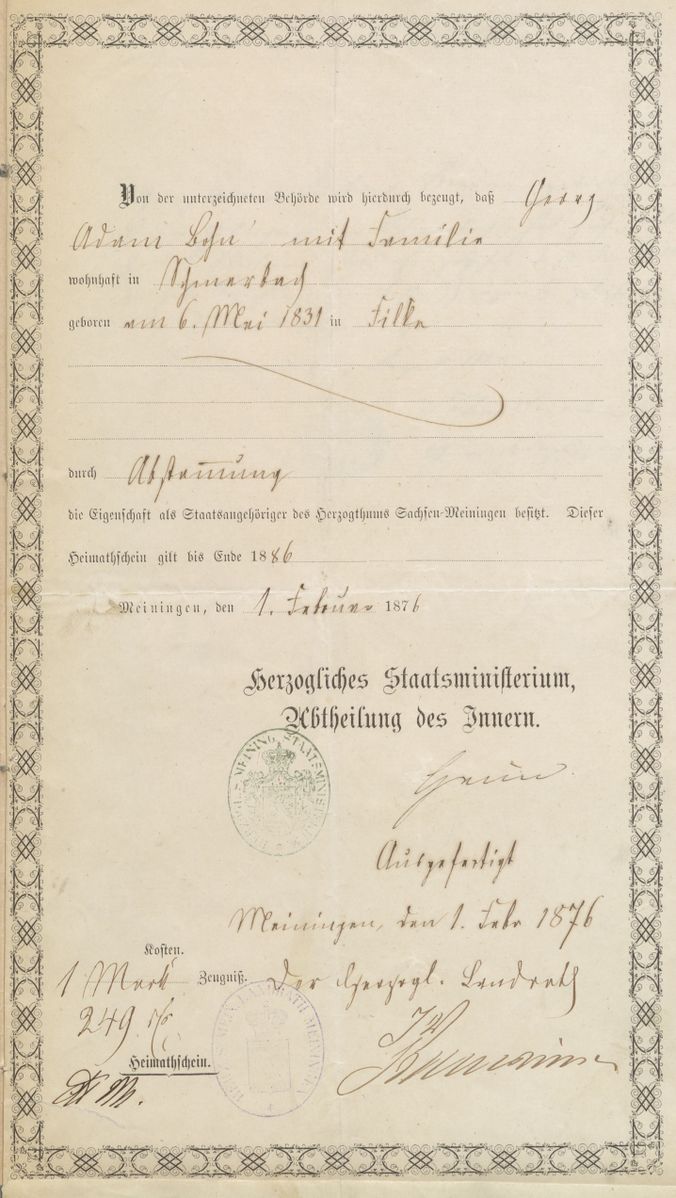 Von der unterzeichneten Behörde wird hierdurch bezeugt, daß Georg
Adam Bohn mit Familie
wohnhaft in Schmerbach
geboren am 6. Mai 1831 in Filke
durch Abstam̅ung
die Eigenschaft als Staatsangehöriger des Herzogthums Sachsen-Meiningen besitzt. Dieser
Heimathschein gilt bis Ende 1886
Meiningen, den 1. Februar 1876
Herzogliches Staatsministerium,
Abtheilung des Innern.
Ausgefertigt
Meiningen, den 1. Febr 1876
Kosten.
1 Mark Zeugniß. Der Herzogl. Landrath
249
Heimathschein.